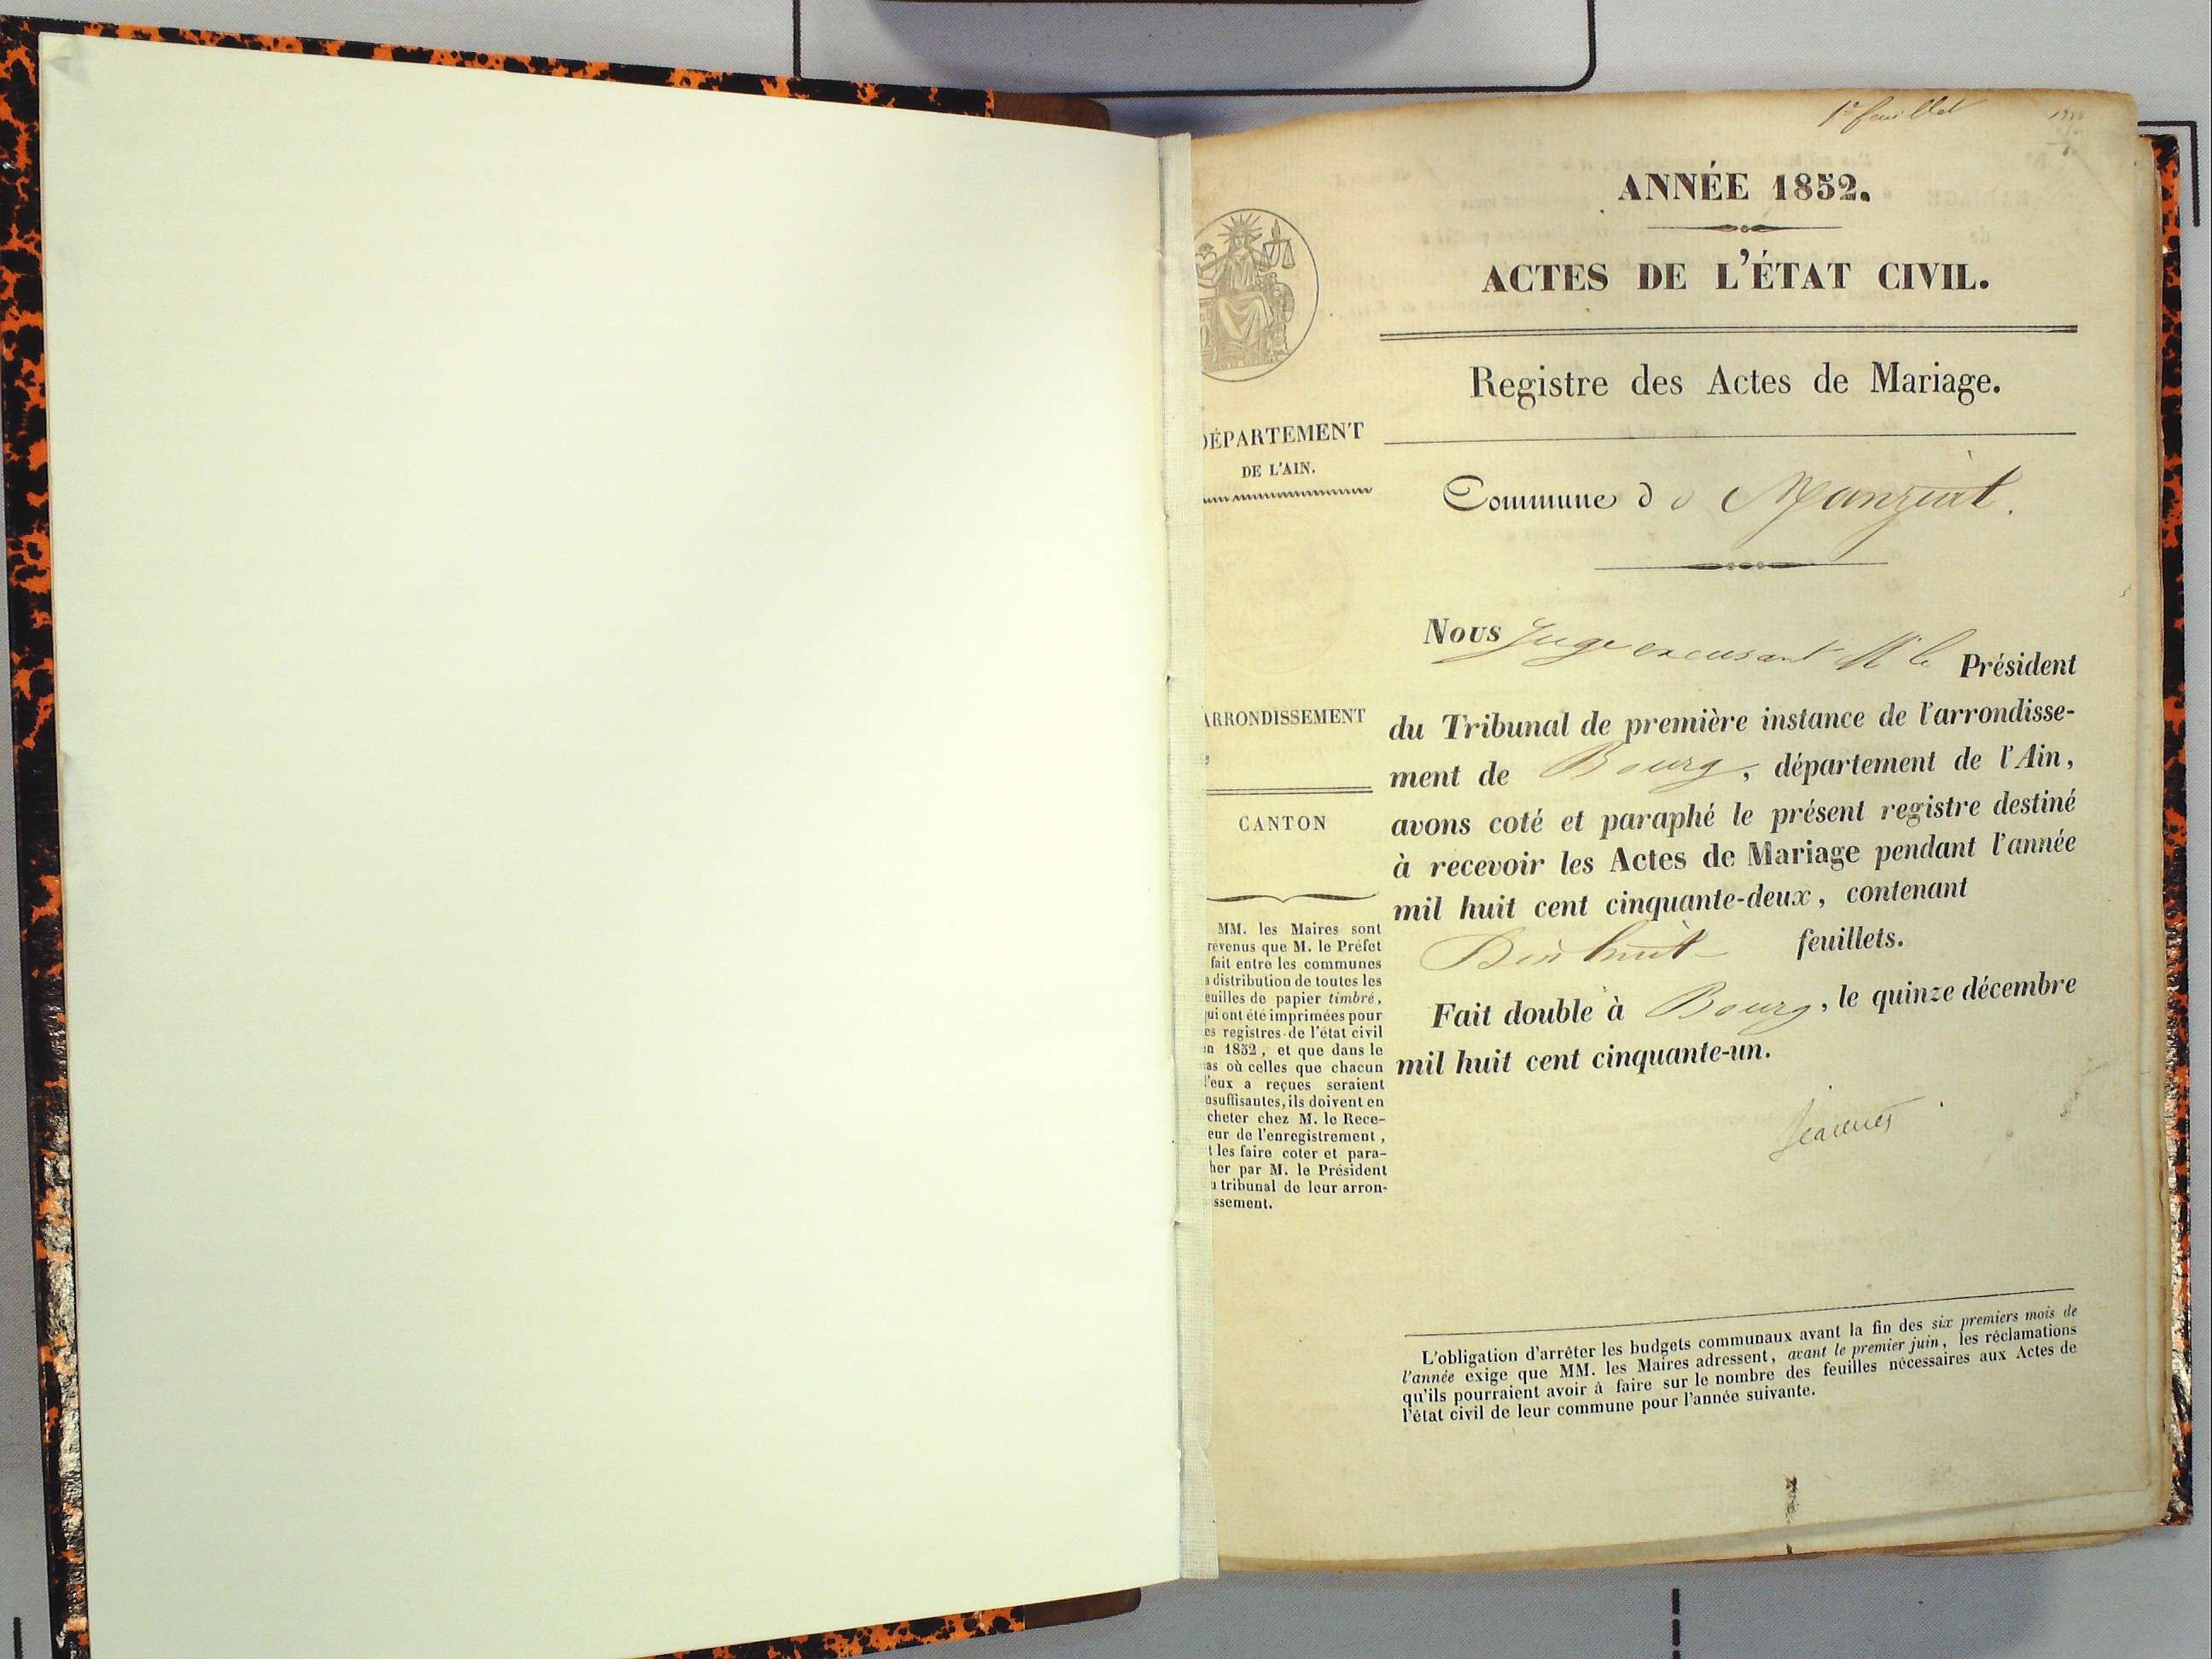 1er feuillet
ANNÉE 1852.
ACTES DE L'ÉTAT CIVIL.
Registre des Actes de Mariage.
DÉPARTEMENT
DE L'AIN.
Commune d e Manziat.
Nous Juge excusant M le Président
ARRONDISSEMENT
du Tribunal de première instance de l'arrondisse-
ment de Bourg, département de l'Ain,
CANTON
avons coté et paraphé le présent registre destiné
à recevoir les Actes de Mariage pendant l'année
mil huit cent cinquante-deux, contenant
Dix huit feuillets.
Fait double à Bourg, le quinze décembre
mil huit cent cinquante-un.
MM. les Maires sont
révenus que M. le Préfet
fait entre les communes
a distribution de toutes les
euilles de papier timbré,
qui ont été imprimées pour
es registres de l'état civil
en 1852, et que dans le
cas où celles que chacun
d'eux a reçues seraient
nsuffisantes, ils doivent en
cheter chez M. le Rece-
eur de l'enregistrement,
t les faire coter et para-
her par M. le Président
u tribunal de leur arron-
ssement.
L'obligation d'arrêter les budgets communaux avant la fin des six premiers mois de
l'année exige que MM. les Maires adressent, avant le premier juin, les réclamations
qu'ils pourraient avoir à faire sur le nombre des feuilles nécessaires aux Actes de
l'état civil de leur commune pour l'année suivante.